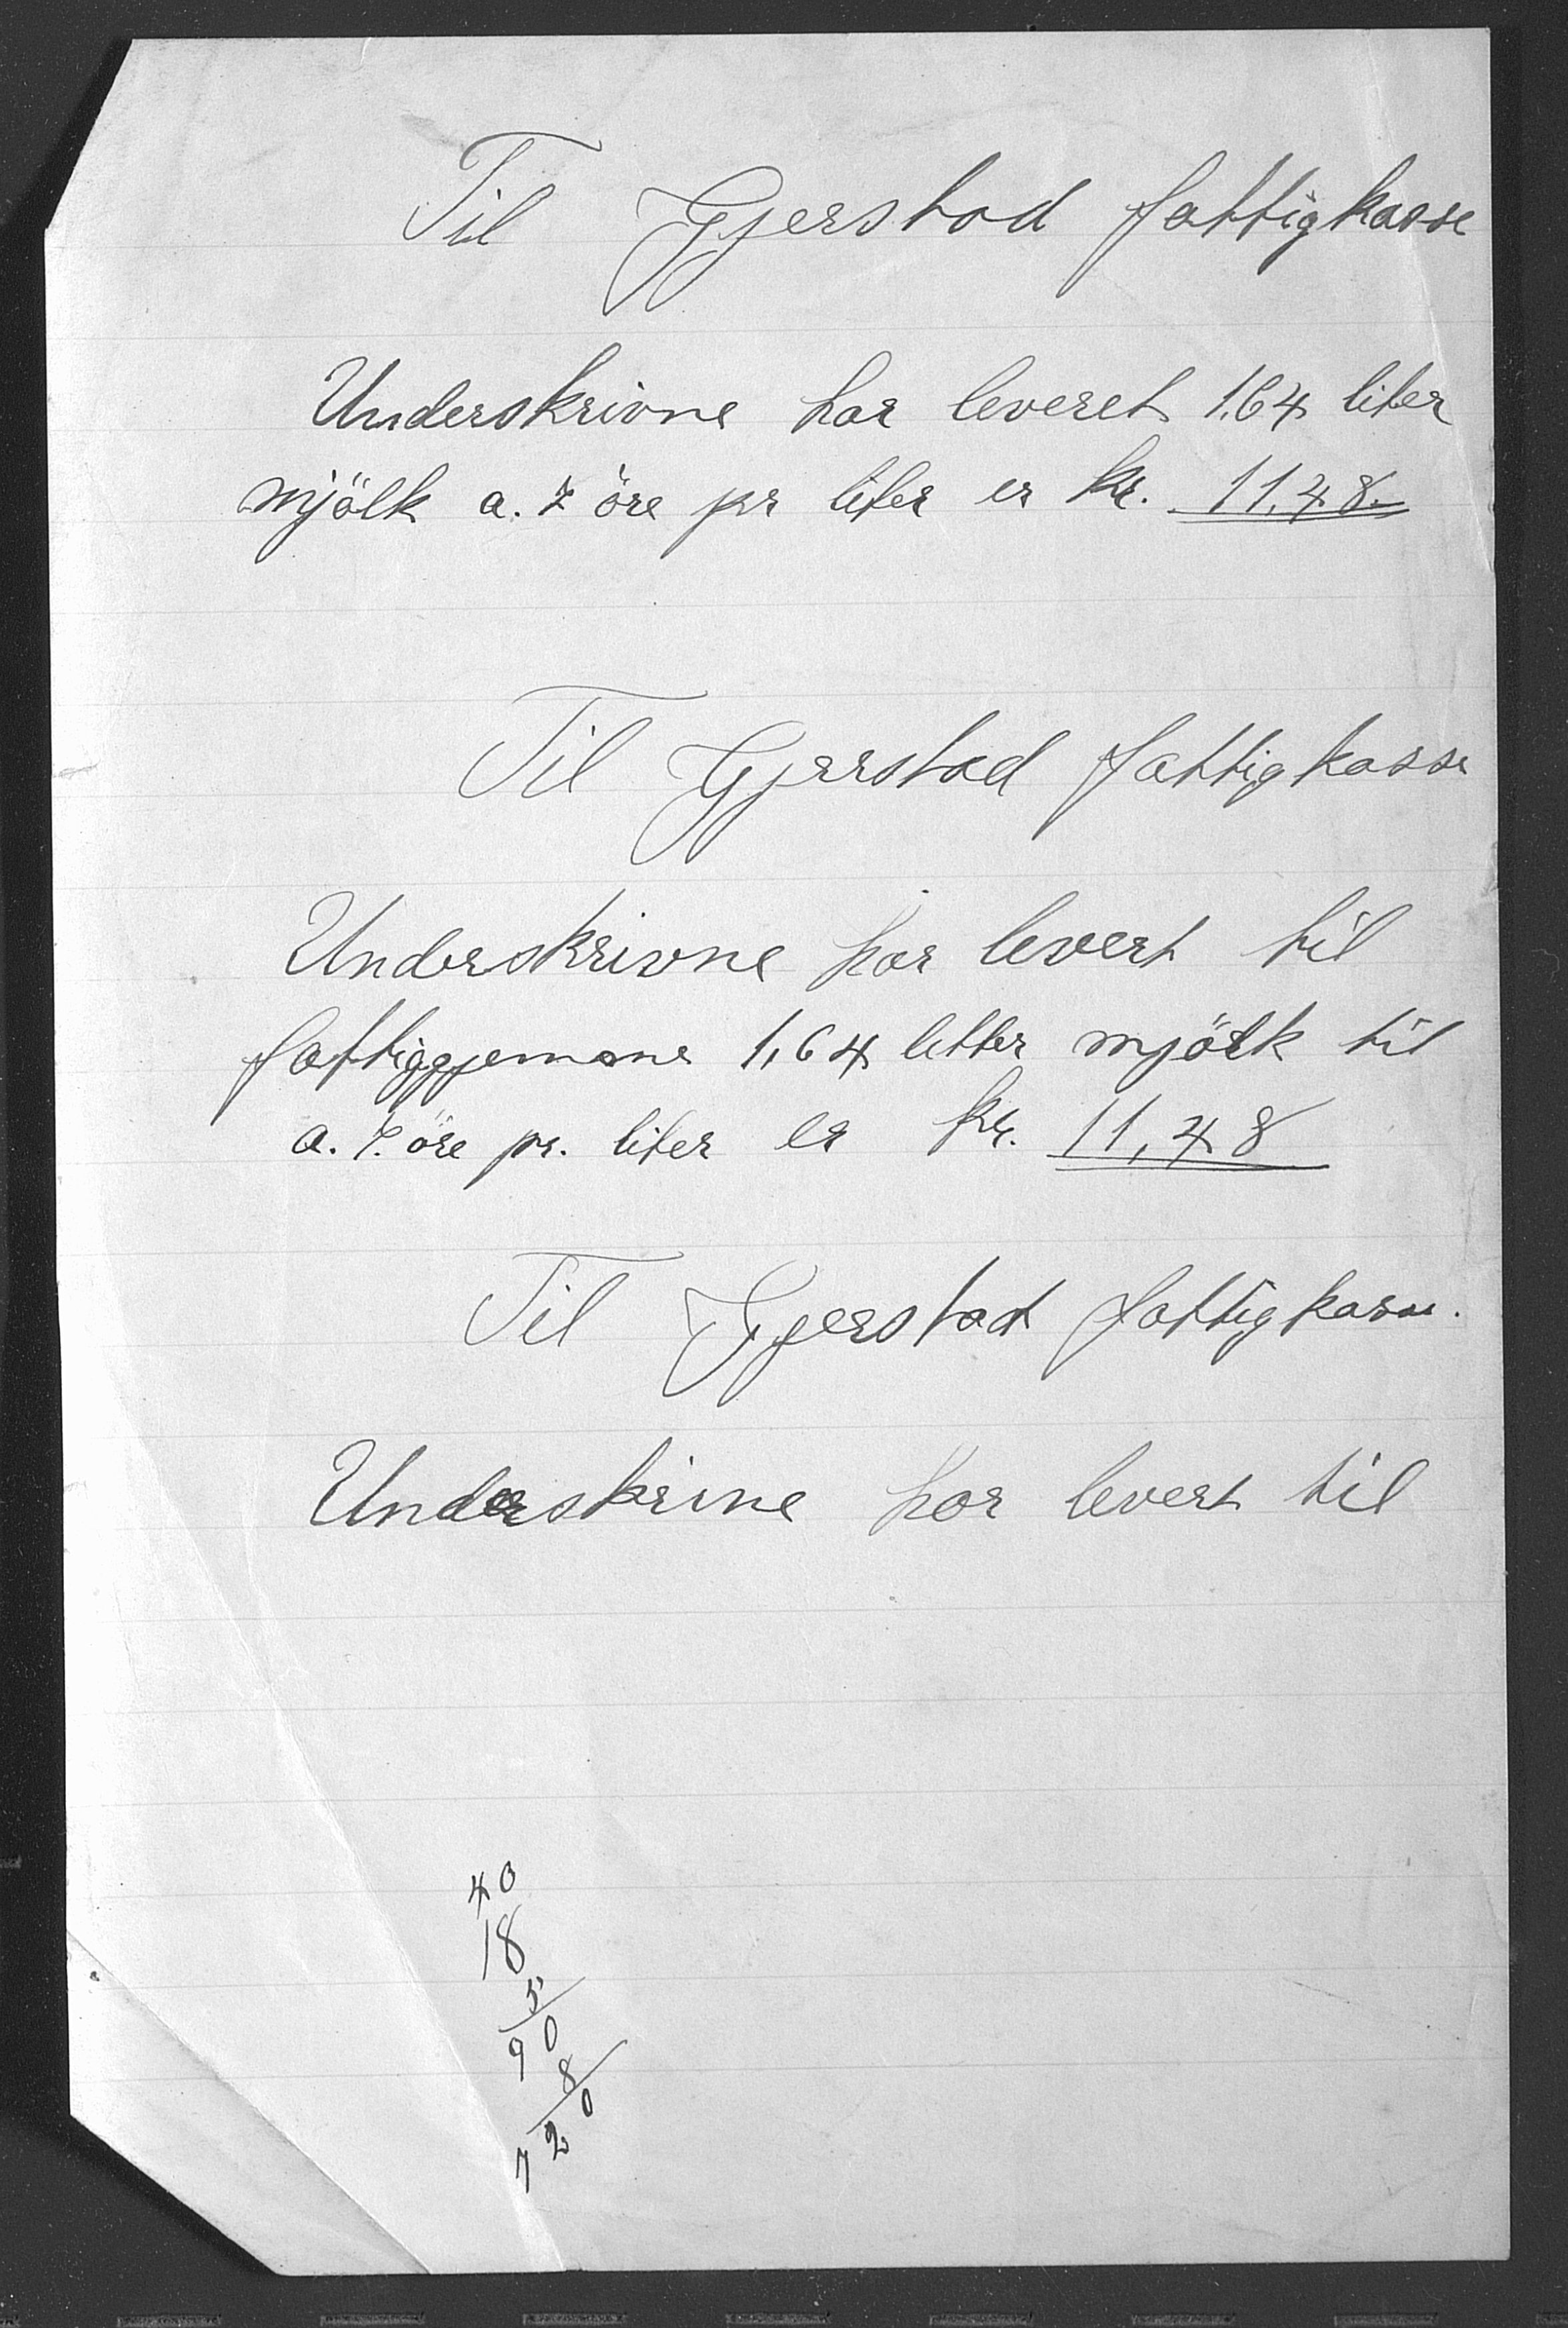 Til Gjerstad fattigkasse
Underskrivne har leveret 1.64 liter
mjölk a. 7 öre pr liter er kr. 11.48
Til Gjerstad fattigkasse
Underskrivne har levert til
1,64 litter mjölk til
a. 7. öre pr. liter er kr. 11,48
Til Gjerstad fattigkasse.
Underskrine har levert til
40
18
5
90
8
720